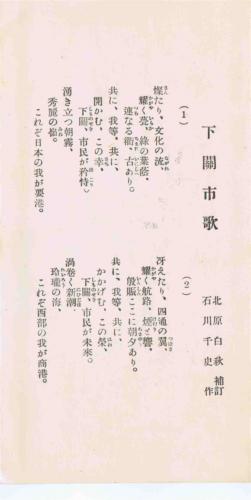 下關市歌
北原白秋 補訂
石川千史 作
(1)
燦たり、文化の流、
耀く甍、綠の葉蔭、
連なる衢、古あり。
共に、我等、共に、
開かむ、この幸、
下關、市民が矜恃。
湧き立つ朝霧
秀麗の嶺。
これぞ日本の我が要港。
(2)
冴えたり、四通の翼、
耀く航路、煙と響、
殷賑ここに朝夕あり。
共に、我等、共に、
かかげむ、この榮、
下關、市民が未來。
渦卷く新潮
玲瓏の海、
これぞ西部の我が商港。